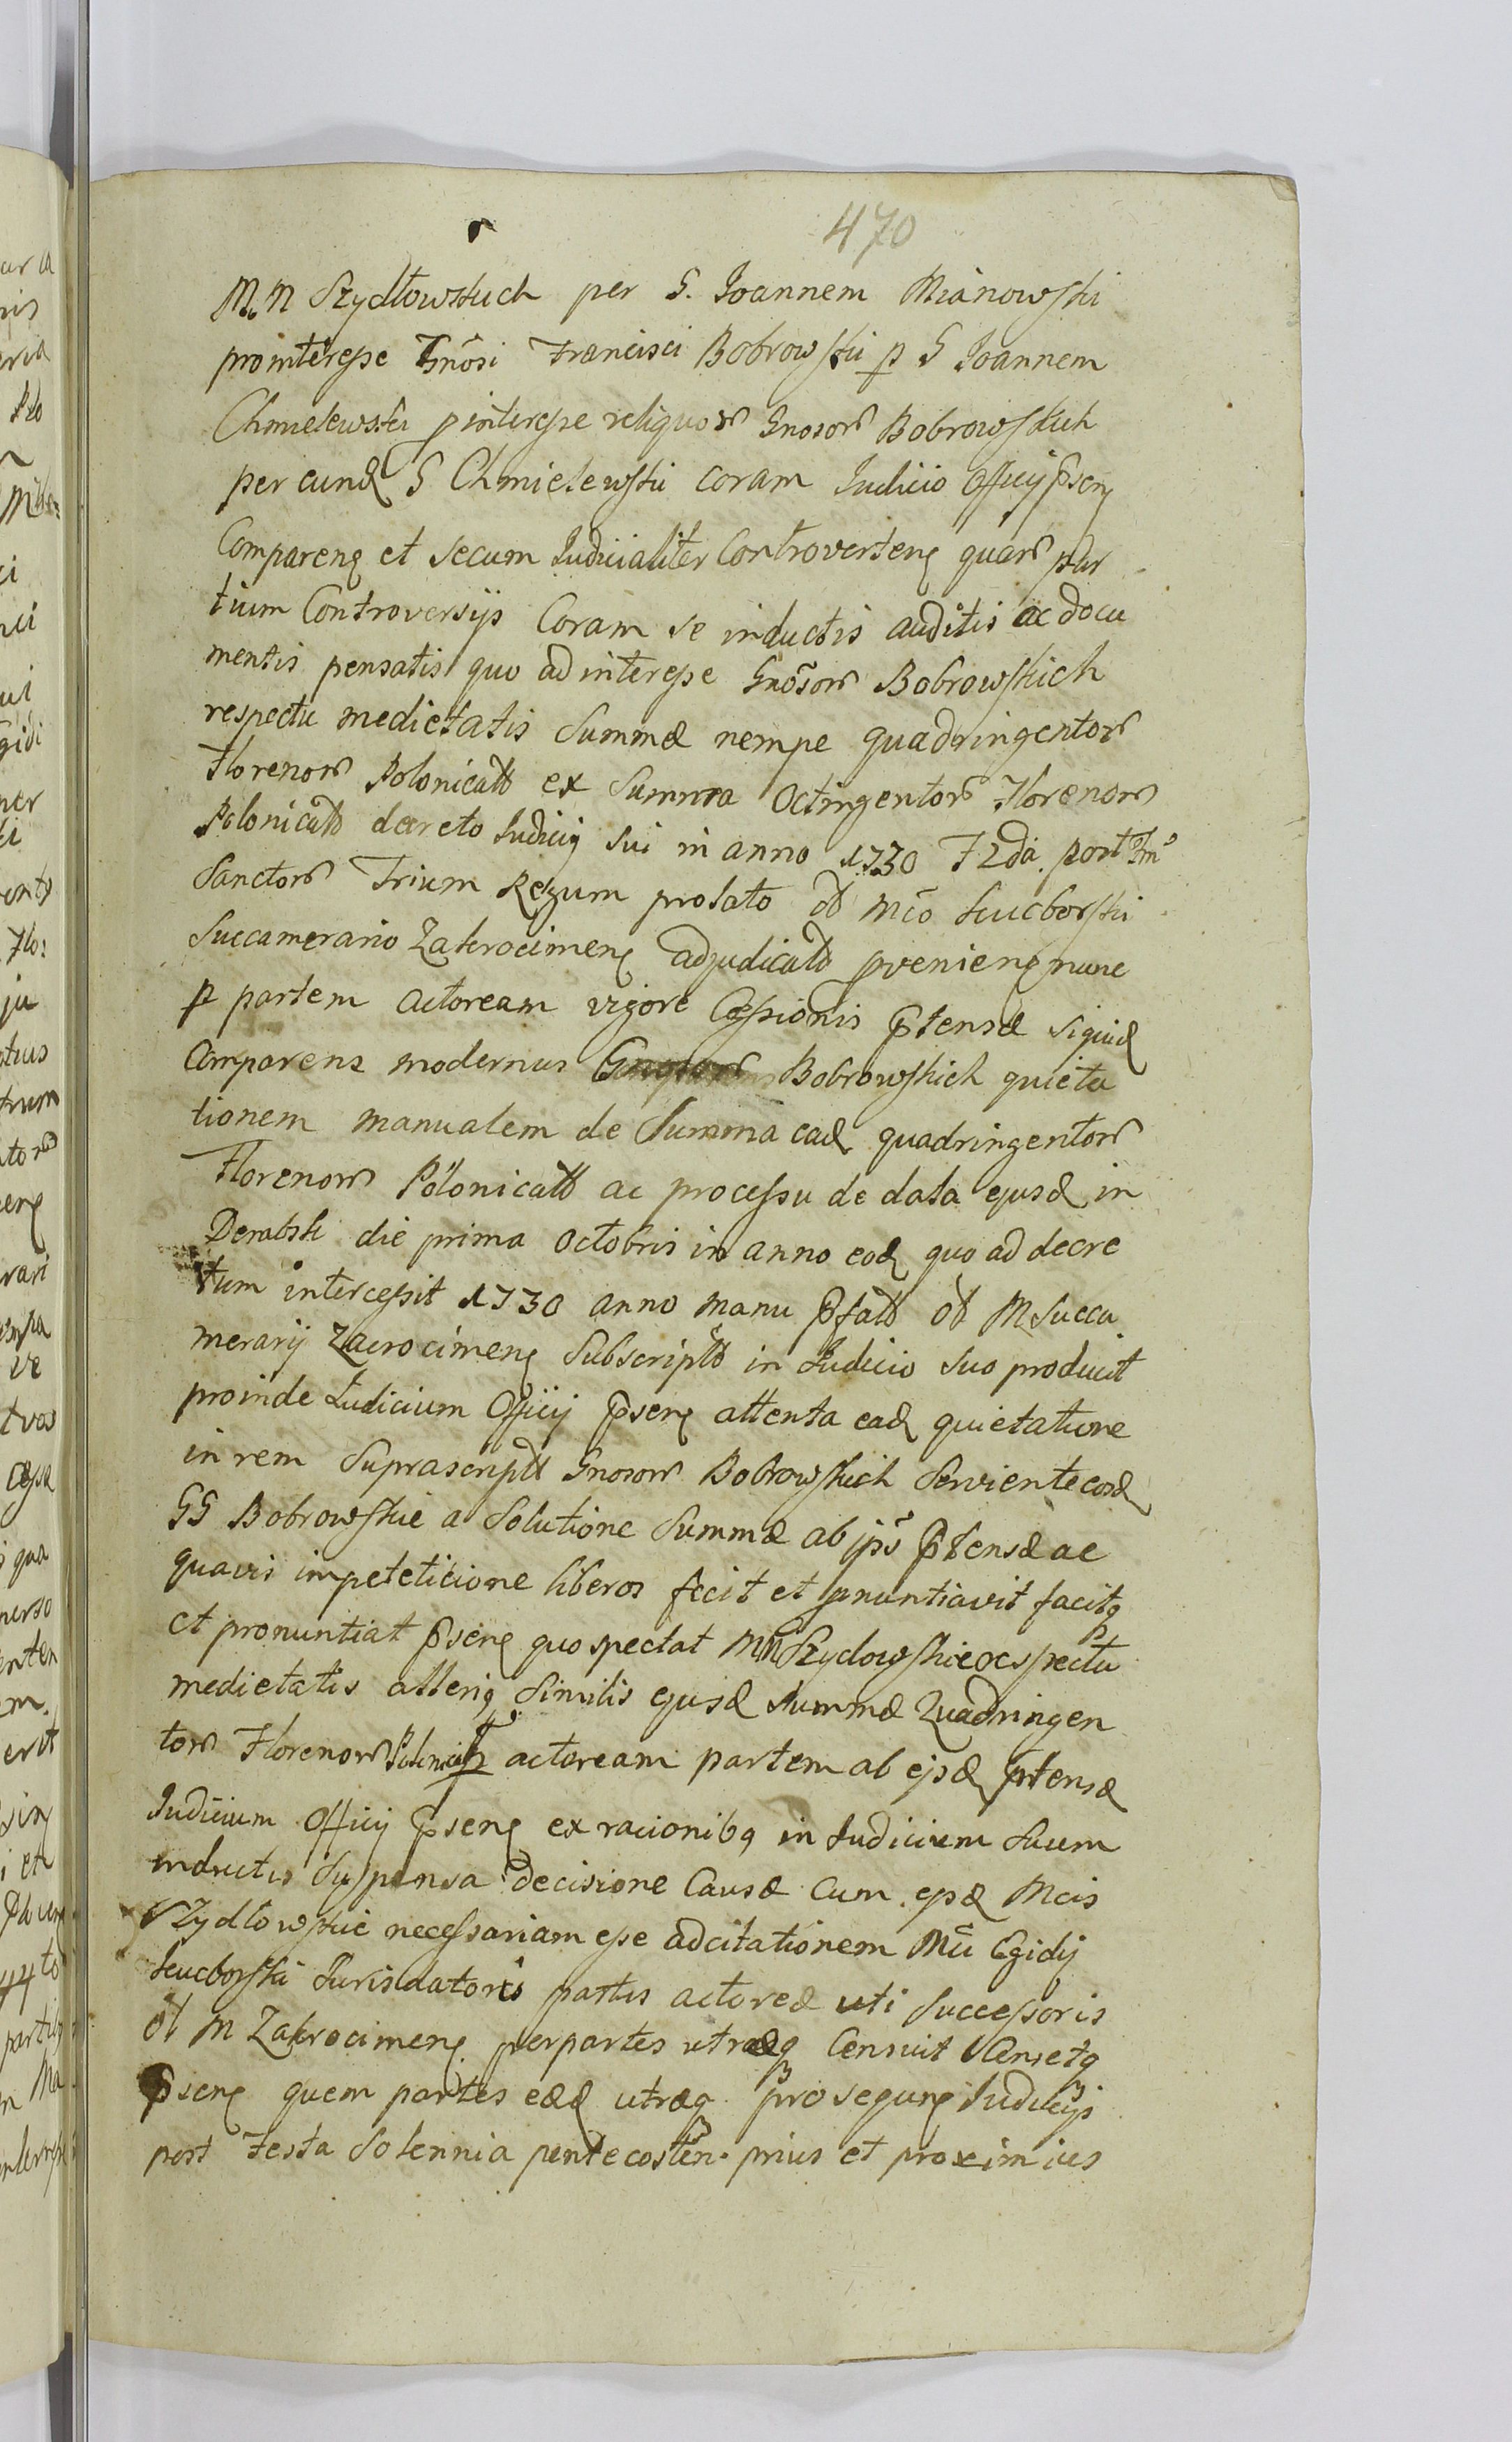 470
M. M Szydłowskich per G. Joannem Mianowski
prointeresse Gnosi Francisci Bobrowski p G Joannem
Chmielewski pinteresse reliquor Gnosor Bobrowskich
per eund G Chmielewski coram Judicio Officij psen
Comparen et secum Judicialiter Controverten quar par
tium Controversijs Coram se inductis auditis ac docu
mentis pensatis quo ad interesse Gnosor Bobrowskich
respectu medietatis Summæ nempe quadringentor
Florenor Polonical ex Summa Octingentor Florenor
Polonical decreto Judicij sui in anno 1730 F 2da post Fm
Sanctor Trium Regum prolato ol Mco
Succamerario Zakrocimen adjudicat pvenien nunc
p partem Actoream vigore Cessionis ptensæ siquid
Comparens modernus Bobrowskich quieta
tionem manualem de Summa ead quadringentor
Florenor Polonical ac processu de data ejusd in
Dembsk die prima Octobris in anno eod quo ad decre
tum intercessit 1730 anno manu pfat ol M Succa
merarij Zacrocimen Subscript in Judicio suo producit
proinde Judicium Officij psen attenta ead quietatione
in rem Suprascript Gnosor Bobrowskich Serviente eosd
GG Bobrowskie a Solutione Summæ ab ips ptensæ ac
quavis impeteticione liberos fecit et pnuntiavit facitq
et pronuntiat psen quo spectat MM Szydowskie respectu
medietatis alteriq Similis ejusd Summæ Quadringen
tor Florenor Polonical p actoream partem ab ejsd ptensæ
Judicium Officij psen ex racionibq in Judicium Suum
inductis Suspensa Decisione Causæ Cum ejsd Mcis
Szydłowskie necessariam esse adcitationem Mci Egidij
Jurisdatoris partis actoreæ uti Successoris
ol M Zakrocimen perpartes utrasq Censuit Censetq
psen quem partes eæd utræq prosequen Judicijs
post Festa Solennia pentecosten prius et proximius